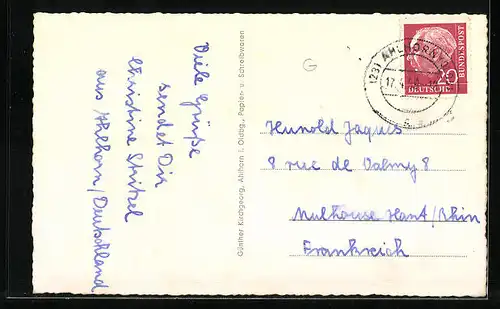 Viele Grüße
sendet Dir
Christine Stitzel
aus Ahlhorn/Deutschland
Günther Kirchgeorg, Ahlhorn i. Oldbg., Papier- u. Schreibwaren
G
(23) AHLHORN
17.
20
DEUTSCHE
BUNDESPOST
Hunold Jaques
8 rue de Valmy 8
Mulhouse Haut/Rhin
Frankreich